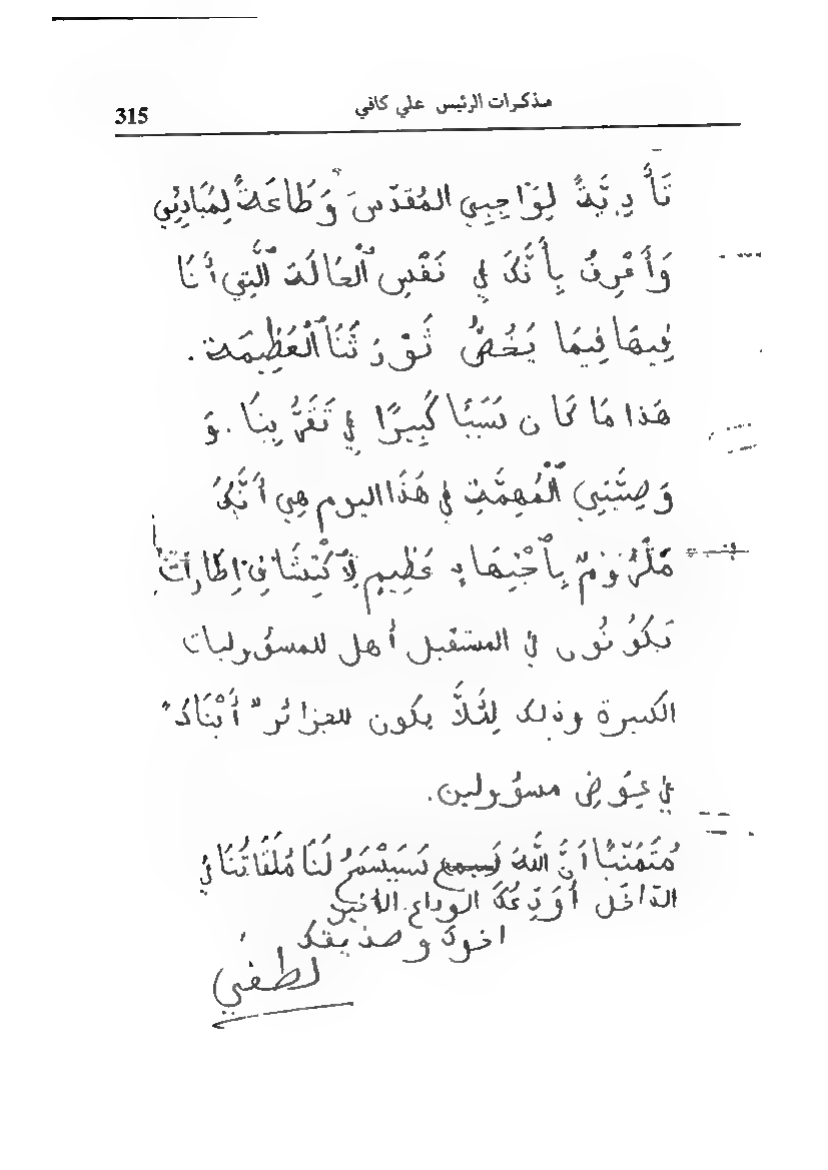 مذكرات الرئيس علي كافي
315
تَأْدِيَّةً لِوَاجِبِي المُقَدّسَ وَطَاعَةً لِمَبَادِئِي
وَأَعْرِفُ بِأَنَّكَ فِي نَفْسِ ٱلْحَالَةِ ٱلَّتِي أَنَا
فِيهَا فِيمَا يَخُصُّ ثَوْرَتُنَا ٱلْعَظِيمَة.
هَذا مَا كَان سَبَبًا كَبِيرًا فِي تَقَرُّبِنَا. وَ
وَصِيَّتِي ٱلْمُهِمَّة فِي هَذَا اليوم هِي أَنَّكَ
مَلْزُومٌ بِٱجْتِهَادٍ عَظِيمٍ لِٱكْتِشَافِ إِطَارَات
يَكُونُون في المستقبل أهل للمسؤوليات
الكبيرة وذلك لِئَلاَّ يكون للجزائر "أَبْنَاءُ"
في عِوَضِ مسؤولين.
مُتَمَنِّيًا أَنَّ اللَّهَ سَيَسْمَحُ لَنَا مُلَقَاتُنَا فِي
الدّاخَل أُوَدِّعُكَ الوداع الأخير
اخوك وصديقك
لطفي